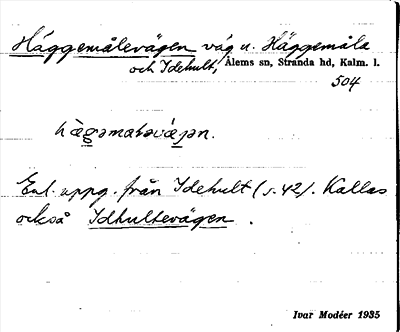 Häggemålevägen väg n. Häggemåla
och Idehult, Ålems sn, Stranda hd, Kalm. l.
504
Enl. uppg. från Idehult (s. 42). Kallas
också Idhultevägen.
Ivar Modéer 1935